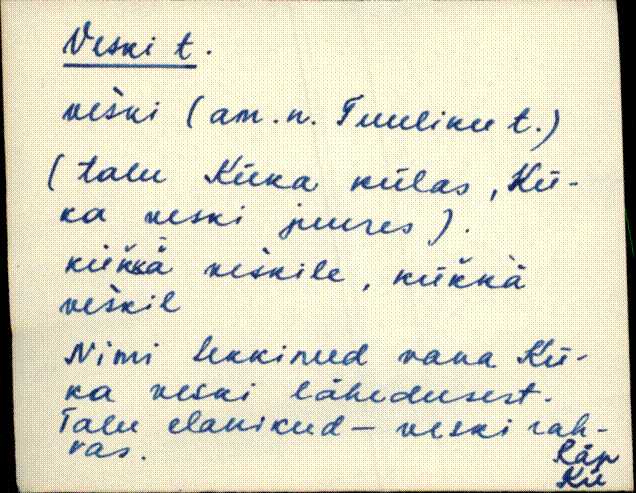 Veski t.
veški (am.n. Tuuliku t.)
(talu Küka külas, Kü-
ka veski juures).
küǩkä veškile, küǩkä
veškil
Nimi tekkinud vana Kü-
ka veski lähedusest.
Talu elanikud – veski rah-
vas.
Räp
Kü